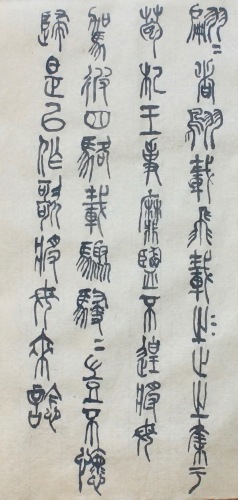 翩〻者鵻載飛載止集于
苞杞王事靡盬不遑將母
駕彼四駱載驟駸〻豈不懷
歸是以作歌將母來諗